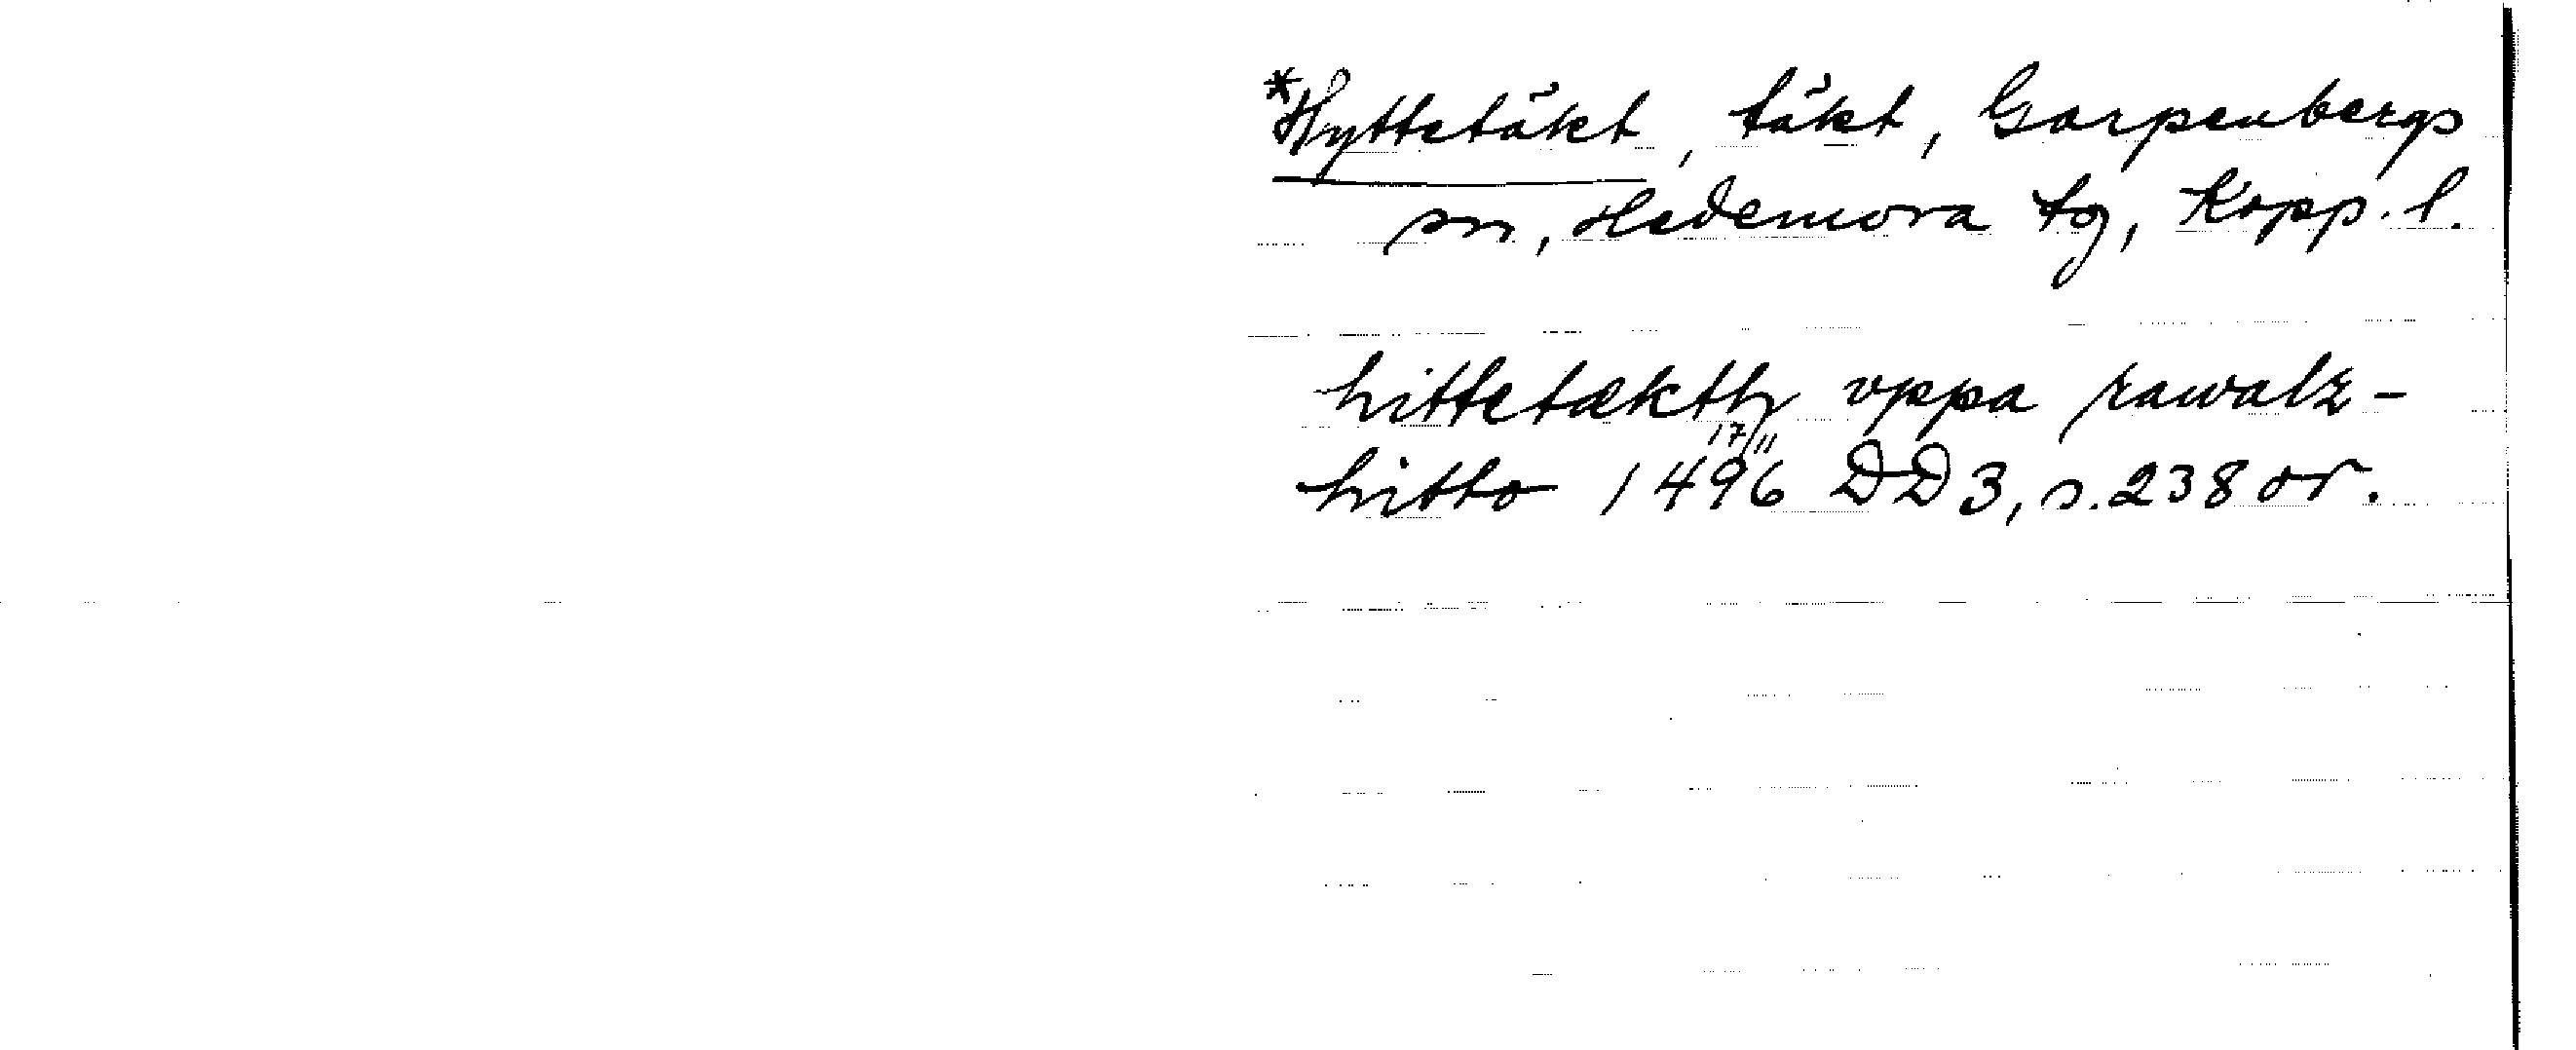 *Hyttetäkt, täkt, Garpenbergs
sn, Hedemora tg, Kopp. l.
hittetækth vppa rawalz-
hitto 1496 17/11 DD 3, s. 238 or.